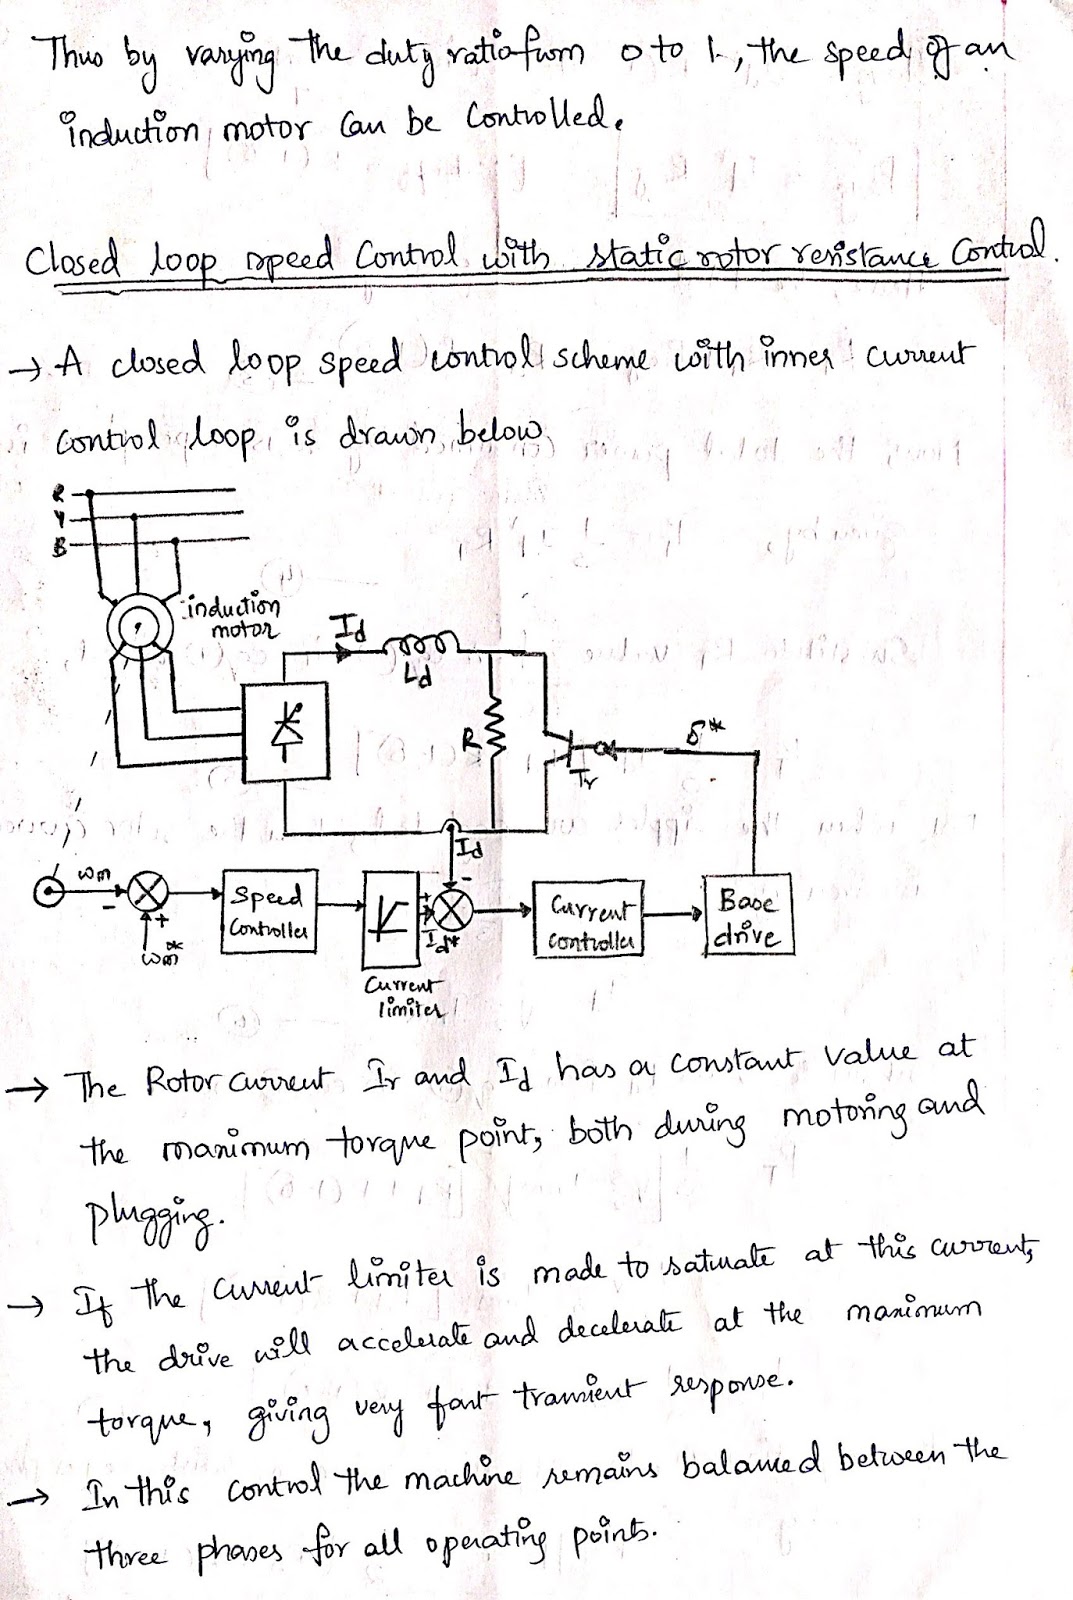 Thus by varying the duty ratio from 0 to 1, the speed of an
induction motor can be controlled.
Closed loop speed control with static rotor resistance control.
→ A closed loop speed control scheme with inner current
control loop is drawn below
R
Y
B
induction
motor
Id
Ld
R
Tr
δ*
Id
ωm
-
+
ωm*
Speed
Controller
Current
limiter
+
-
Id*
Current
controller
Base
drive
→ The Rotor current Ir and Id has a constant value at
the maximum torque point, both during motoring and
plugging.
→ If the current limiter is made to saturate at this current,
the drive will accelerate and decelerate at the maximum
torque, giving very fast transient response.
→ In this control the machine remains balanced between the
three phases for all operating points.